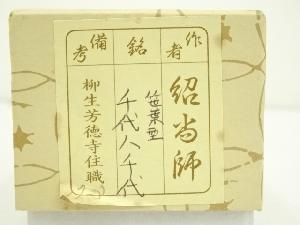 作者
紹尚師
銘
笹葉型
千代八千代
備考
柳生芳徳寺住職